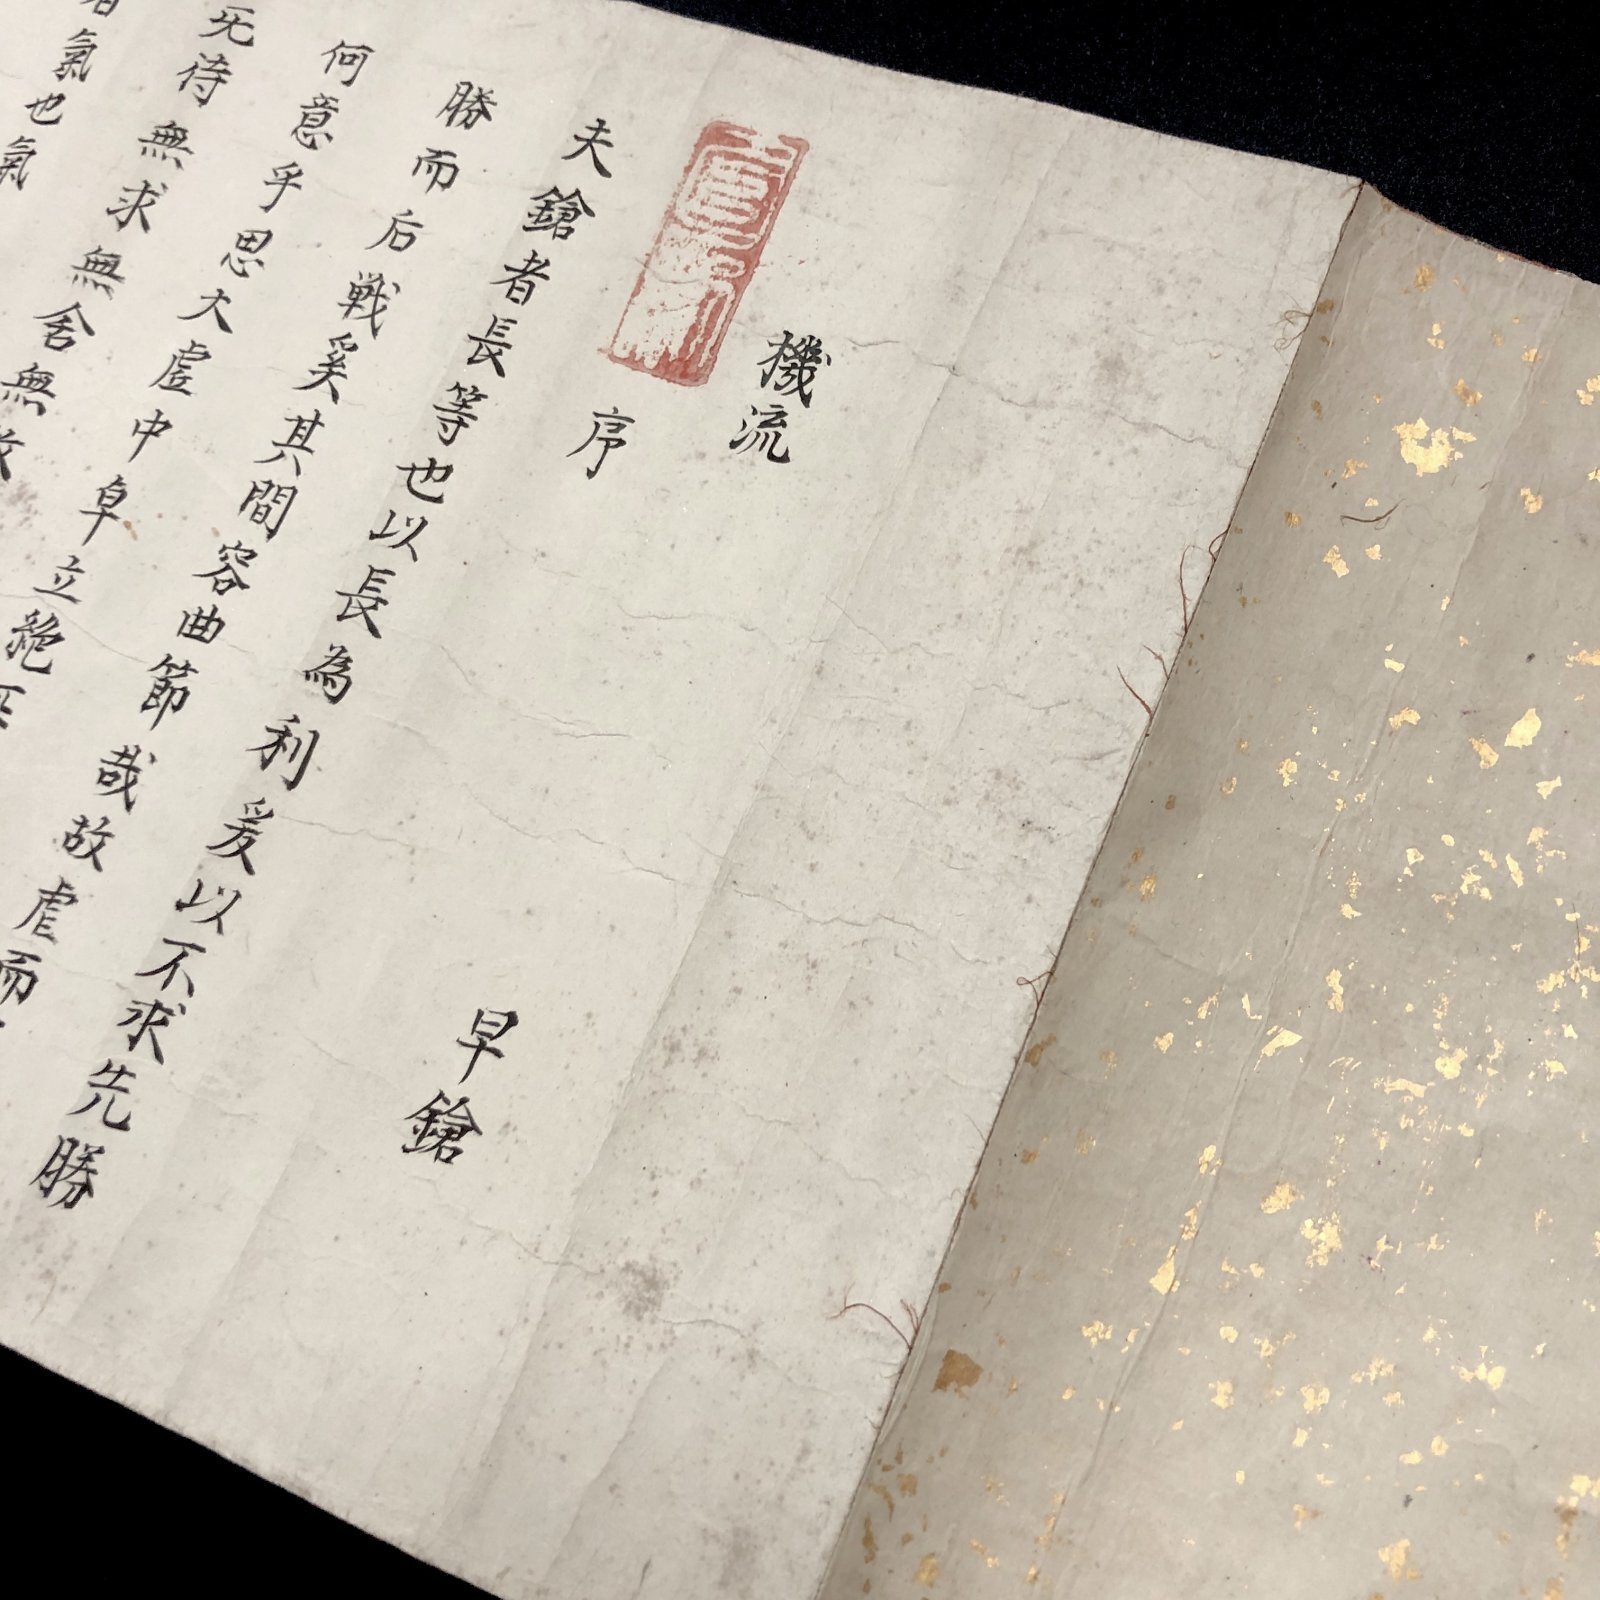 機流 早鎗
序
夫鎗者長等也以長為利爰以不求先勝
勝而后戦奚其間容曲節哉故虗而
何意乎思大虗中卓立絶
死待無求無舎無
者氣也氣